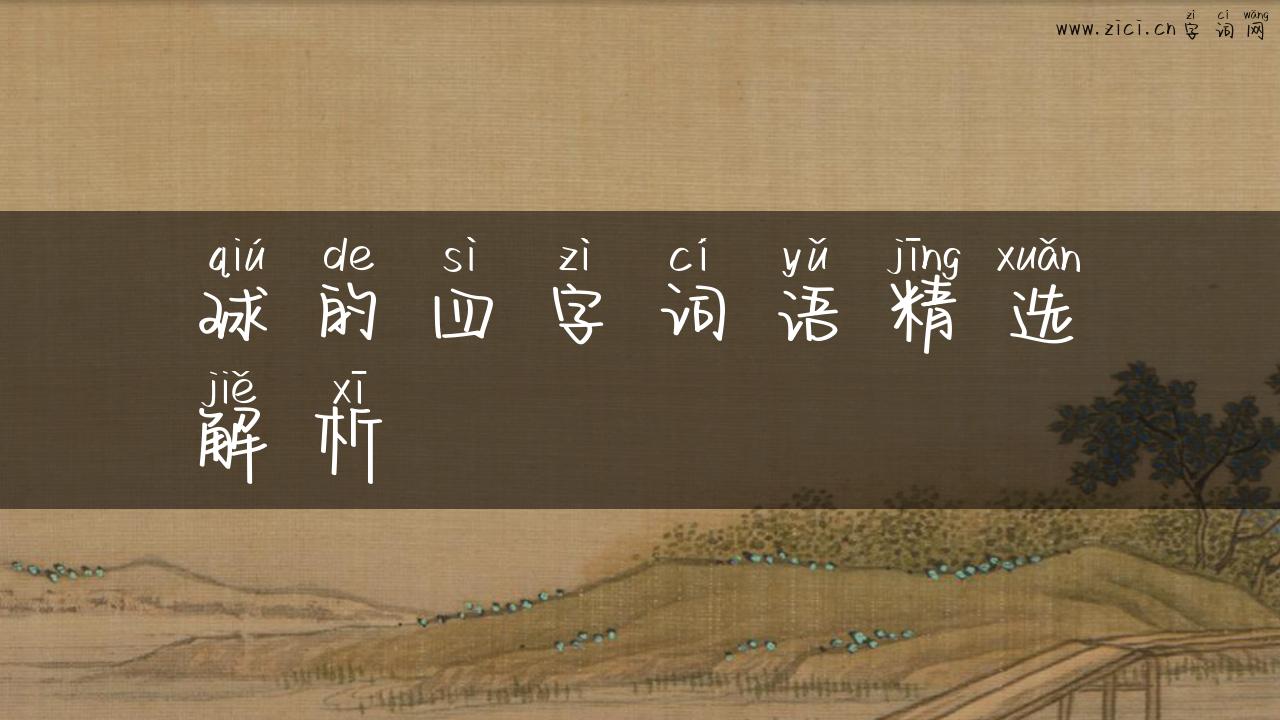 zì cí wǎng
www.zici.cn字词网
qiú de sì zì cí yǔ jīng xuǎn
球的四字词语精选
jiě xī
解析